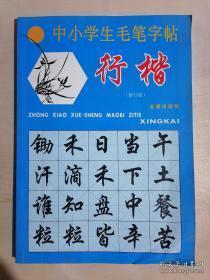 中小学生毛笔字帖
行楷
(修订版)
金盾出版社
ZHONG XIAO XUE-SHENG MAOBI ZITIE
XINGKAI
锄禾日当午
汗滴禾下土
谁知盘中餐
粒粒皆辛苦